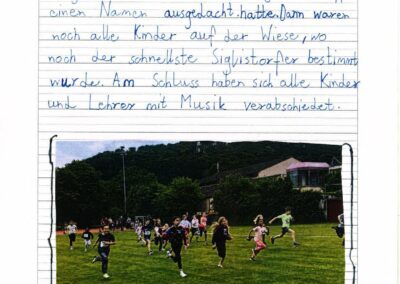 einen Namen ausgedacht hatte. Dann waren
noch alle Kinder auf der Wiese, wo
noch der schnellste Siglistorfer bestimmt
wurde. Am Schluss haben sich alle Kinder
und Lehrer mit Musik verabschiedet.